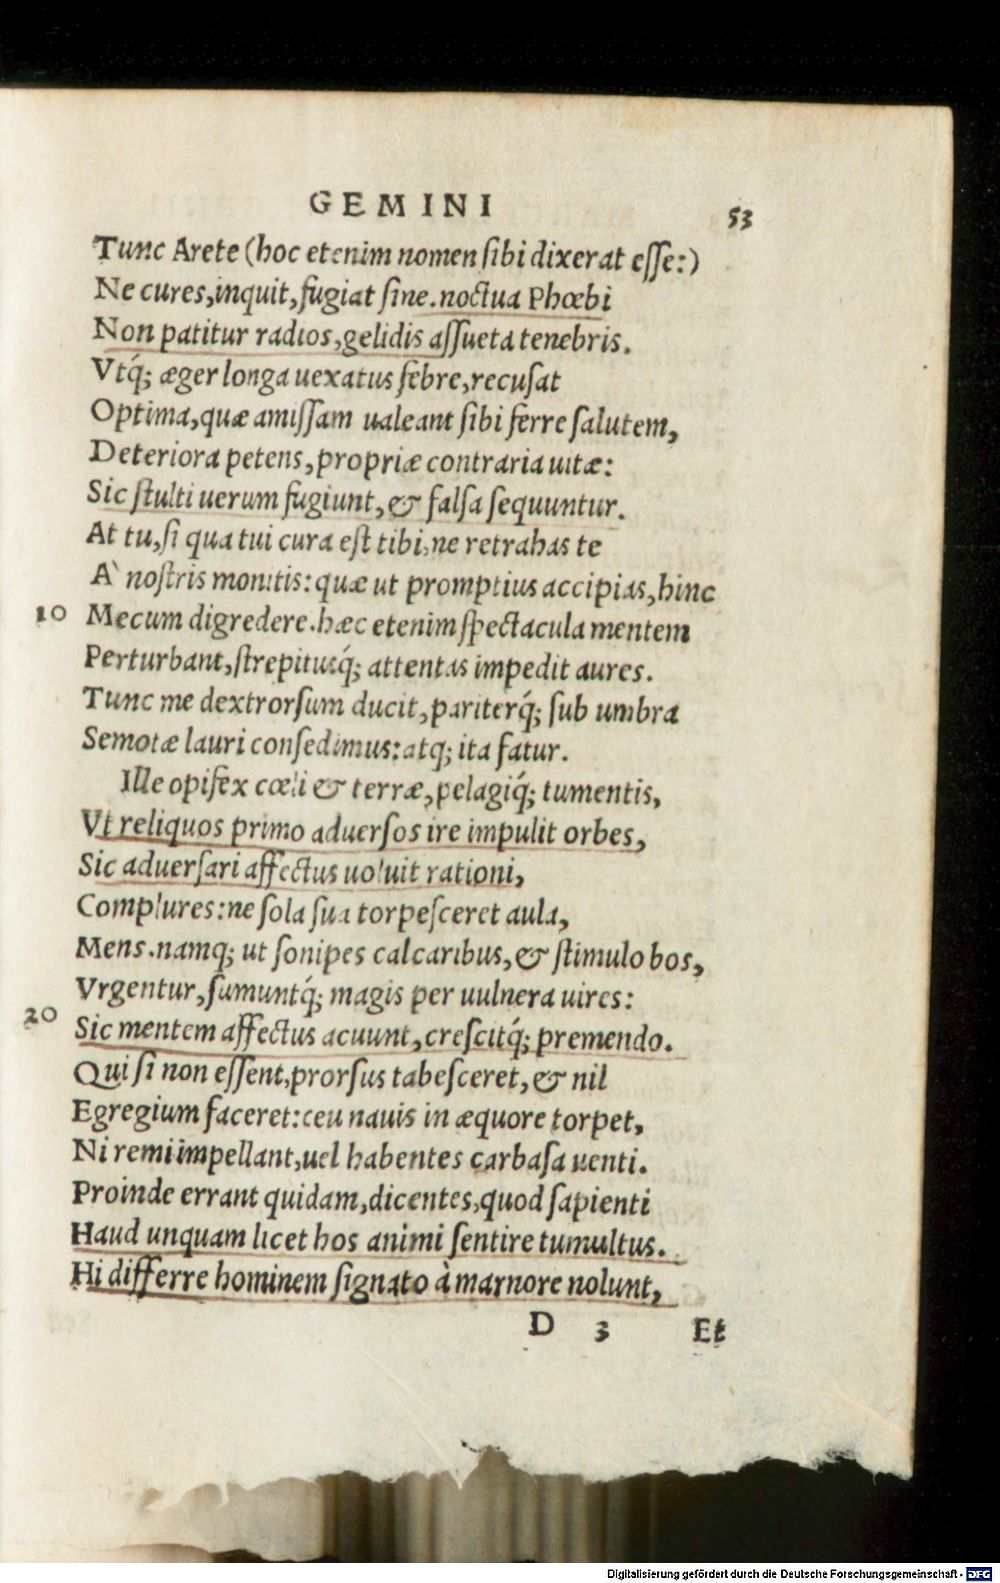 GEMINI 53
Tunc Arete (hoc etenim nomen sibi dixerat esse:)
Ne cures, inquit, fugiat sine. noctua Phœbi
Non patitur radios, gelidis assueta tenebris.
Vtq́; æger longa uexatus febre, recusat
Optima, quæ amissam ualeant sibi ferre salutem,
Deteriora petens, propriæ contraria uitæ:
Sic stulti uerum fugiunt, & falsa sequuntur.
At tu, si qua tui cura est tibi, ne retrahas te
A` nostris monitis: quæ ut promptius accipias, hinc
10 Mecum digredere. hæc etenim spectacula mentem
Perturbant, strepitusq́; attentas impedit aures.
Tunc me dextrorsum ducit, pariterq́; sub umbra
Semotæ lauri consedimus: atq; ita fatur.
Ille opifex cœli & terræ, pelagiq́; tumentis,
Vt reliquos primo aduersos ire impulit orbes,
Sic aduersari affectus uoluit rationi,
Complures: ne sola sua torpesceret aula,
Mens. namq; ut sonipes calcaribus, & stimulo bos,
Vrgentur, sumuntq́; magis per uulnera uires:
20 Sic mentem affectus acuunt, crescitq́; premendo.
Qui si non essent, prorsus tabesceret, & nil
Egregium faceret: ceu nauis in æquore torpet,
Ni remi impellant, uel habentes carbasa uenti.
Proinde errant quidam, dicentes, quod sapienti
Haud unquam licet hos animi sentire tumultus.
Hi differre hominem signato à marnore nolunt,
D 3 Et
Digitalisierung gefördert durch die Deutsche Forschungsgemeinschaft - DFG